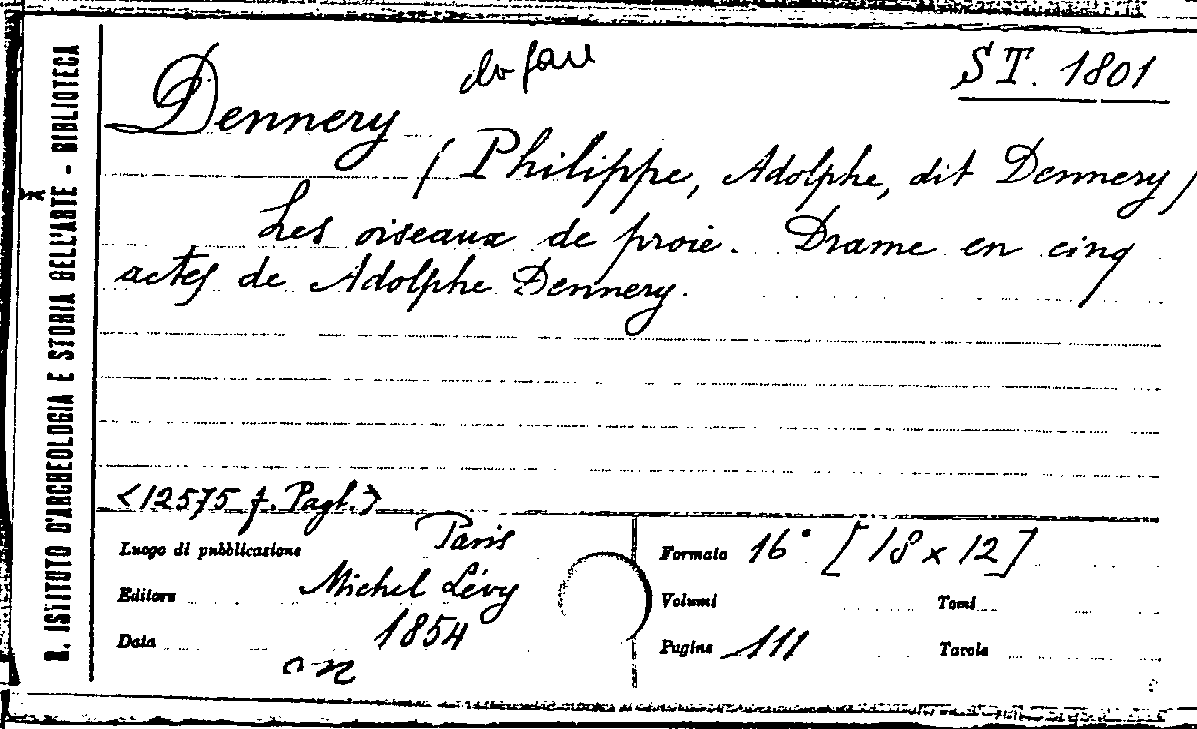 R. ISTITUTO D'ARCHEOLOGIA E STORIA DELL'ARTE - BIBLIOTECA
da fare
ST. 1801
Dennery
(Philippe, Adolphe, dit Dennery)
Les oiseaux de proie. Drame en cinq
actes de Adolphe Dennery.
<12575 f. Pagl.>
Luogo di pubblicazione Paris
Editore Michel Lévy
Data 1854
Formato 16° [18 x 12]
Volumi Tomi
Pagine 111 Tavole